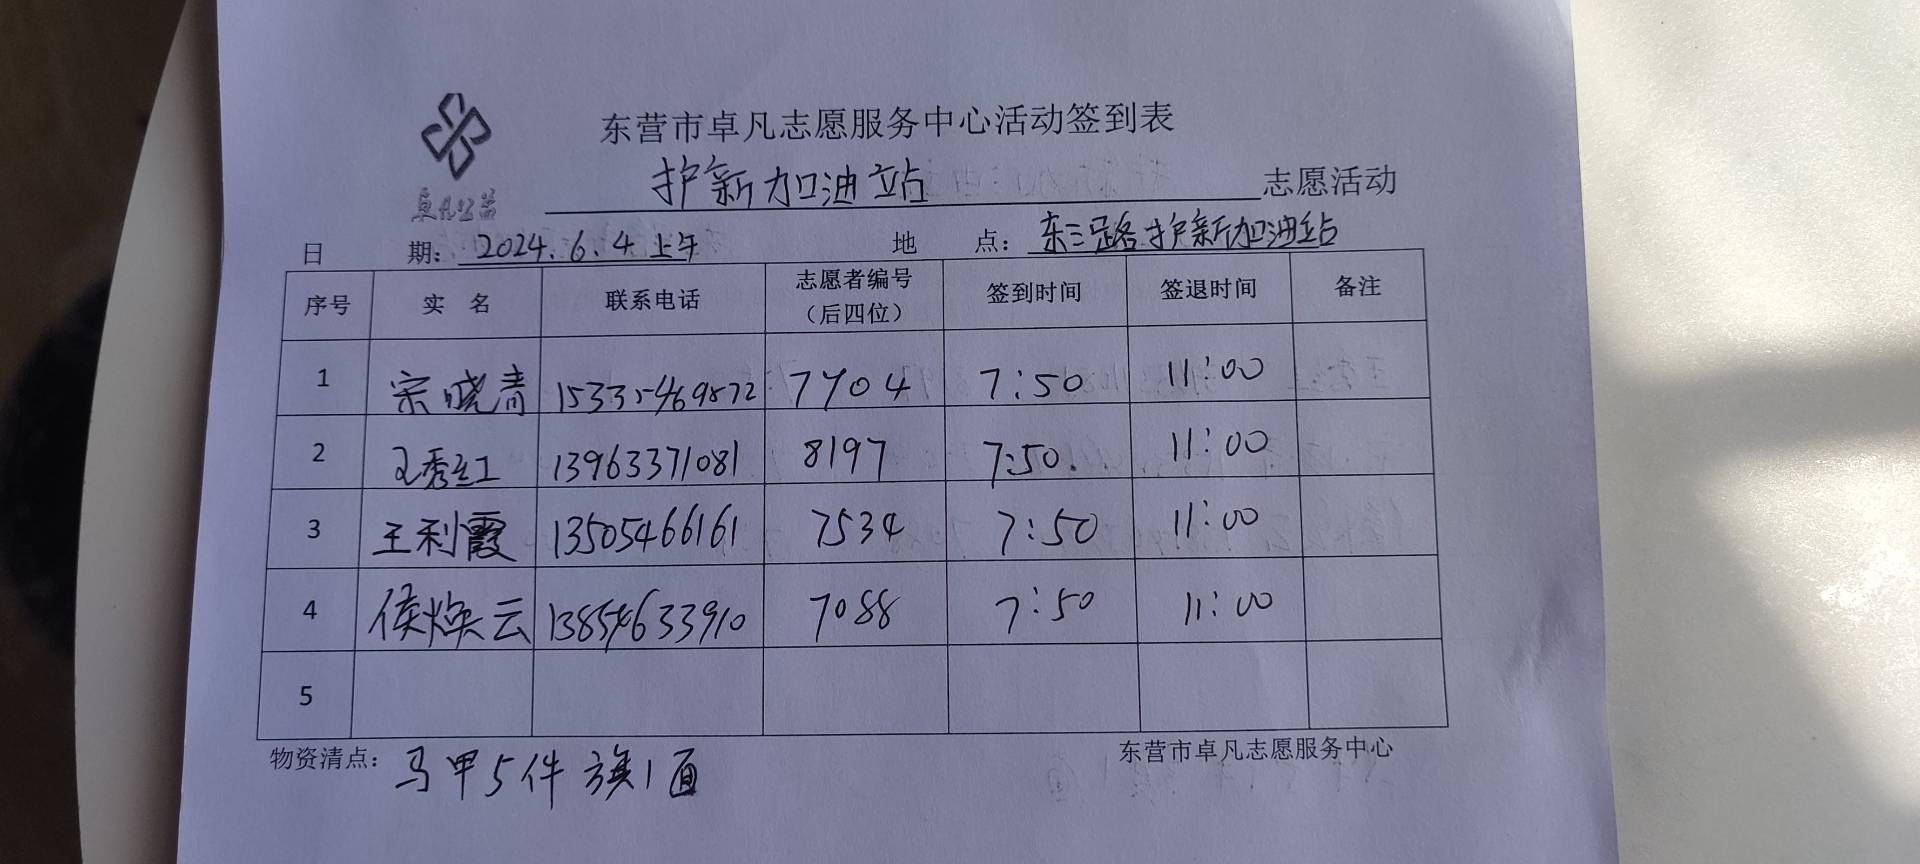 东营市卓凡志愿服务中心活动签到表
卓凡公益
护新加油站 志愿活动
日 期: 2024.6.4上午 地 点: 东三路护新加油站
序号 实 名 联系电话 志愿者编号(后四位) 签到时间 签退时间 备注
1 宋晓青 15335469872 7904 7:50 11:00
2 王秀红 13963371081 8197 7:50. 11:00
3 王利霞 13505466161 7534 7:50 11:00
4 侯焕云 13854633910 7088 7:50 11:00
5
物资清点: 马甲5件 旗1面
东营市卓凡志愿服务中心